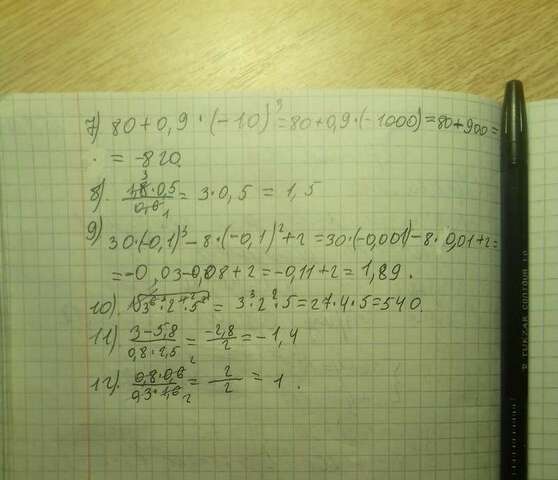 7) 80+0,9·(-10)³=80+0,9·(-1000)=80+900=
= -820.
8). 1,8·0,5/0,6 = 3·0,5 = 1,5
9) 30·(-0,1)³-8·(-0,1)²+2=30·(-0,001)-8·0,01+2=
=-0,03-0,08+2=-0,11+2=1,89.
10). √3⁶·2⁴·5² = 3³·2²·5=27·4·5=540.
11). 3-5,8/0,8·2,5 = -2,8/2 =-1,4
12). 0,8·0,6/0,3·1,6 = 2/2 = 1.